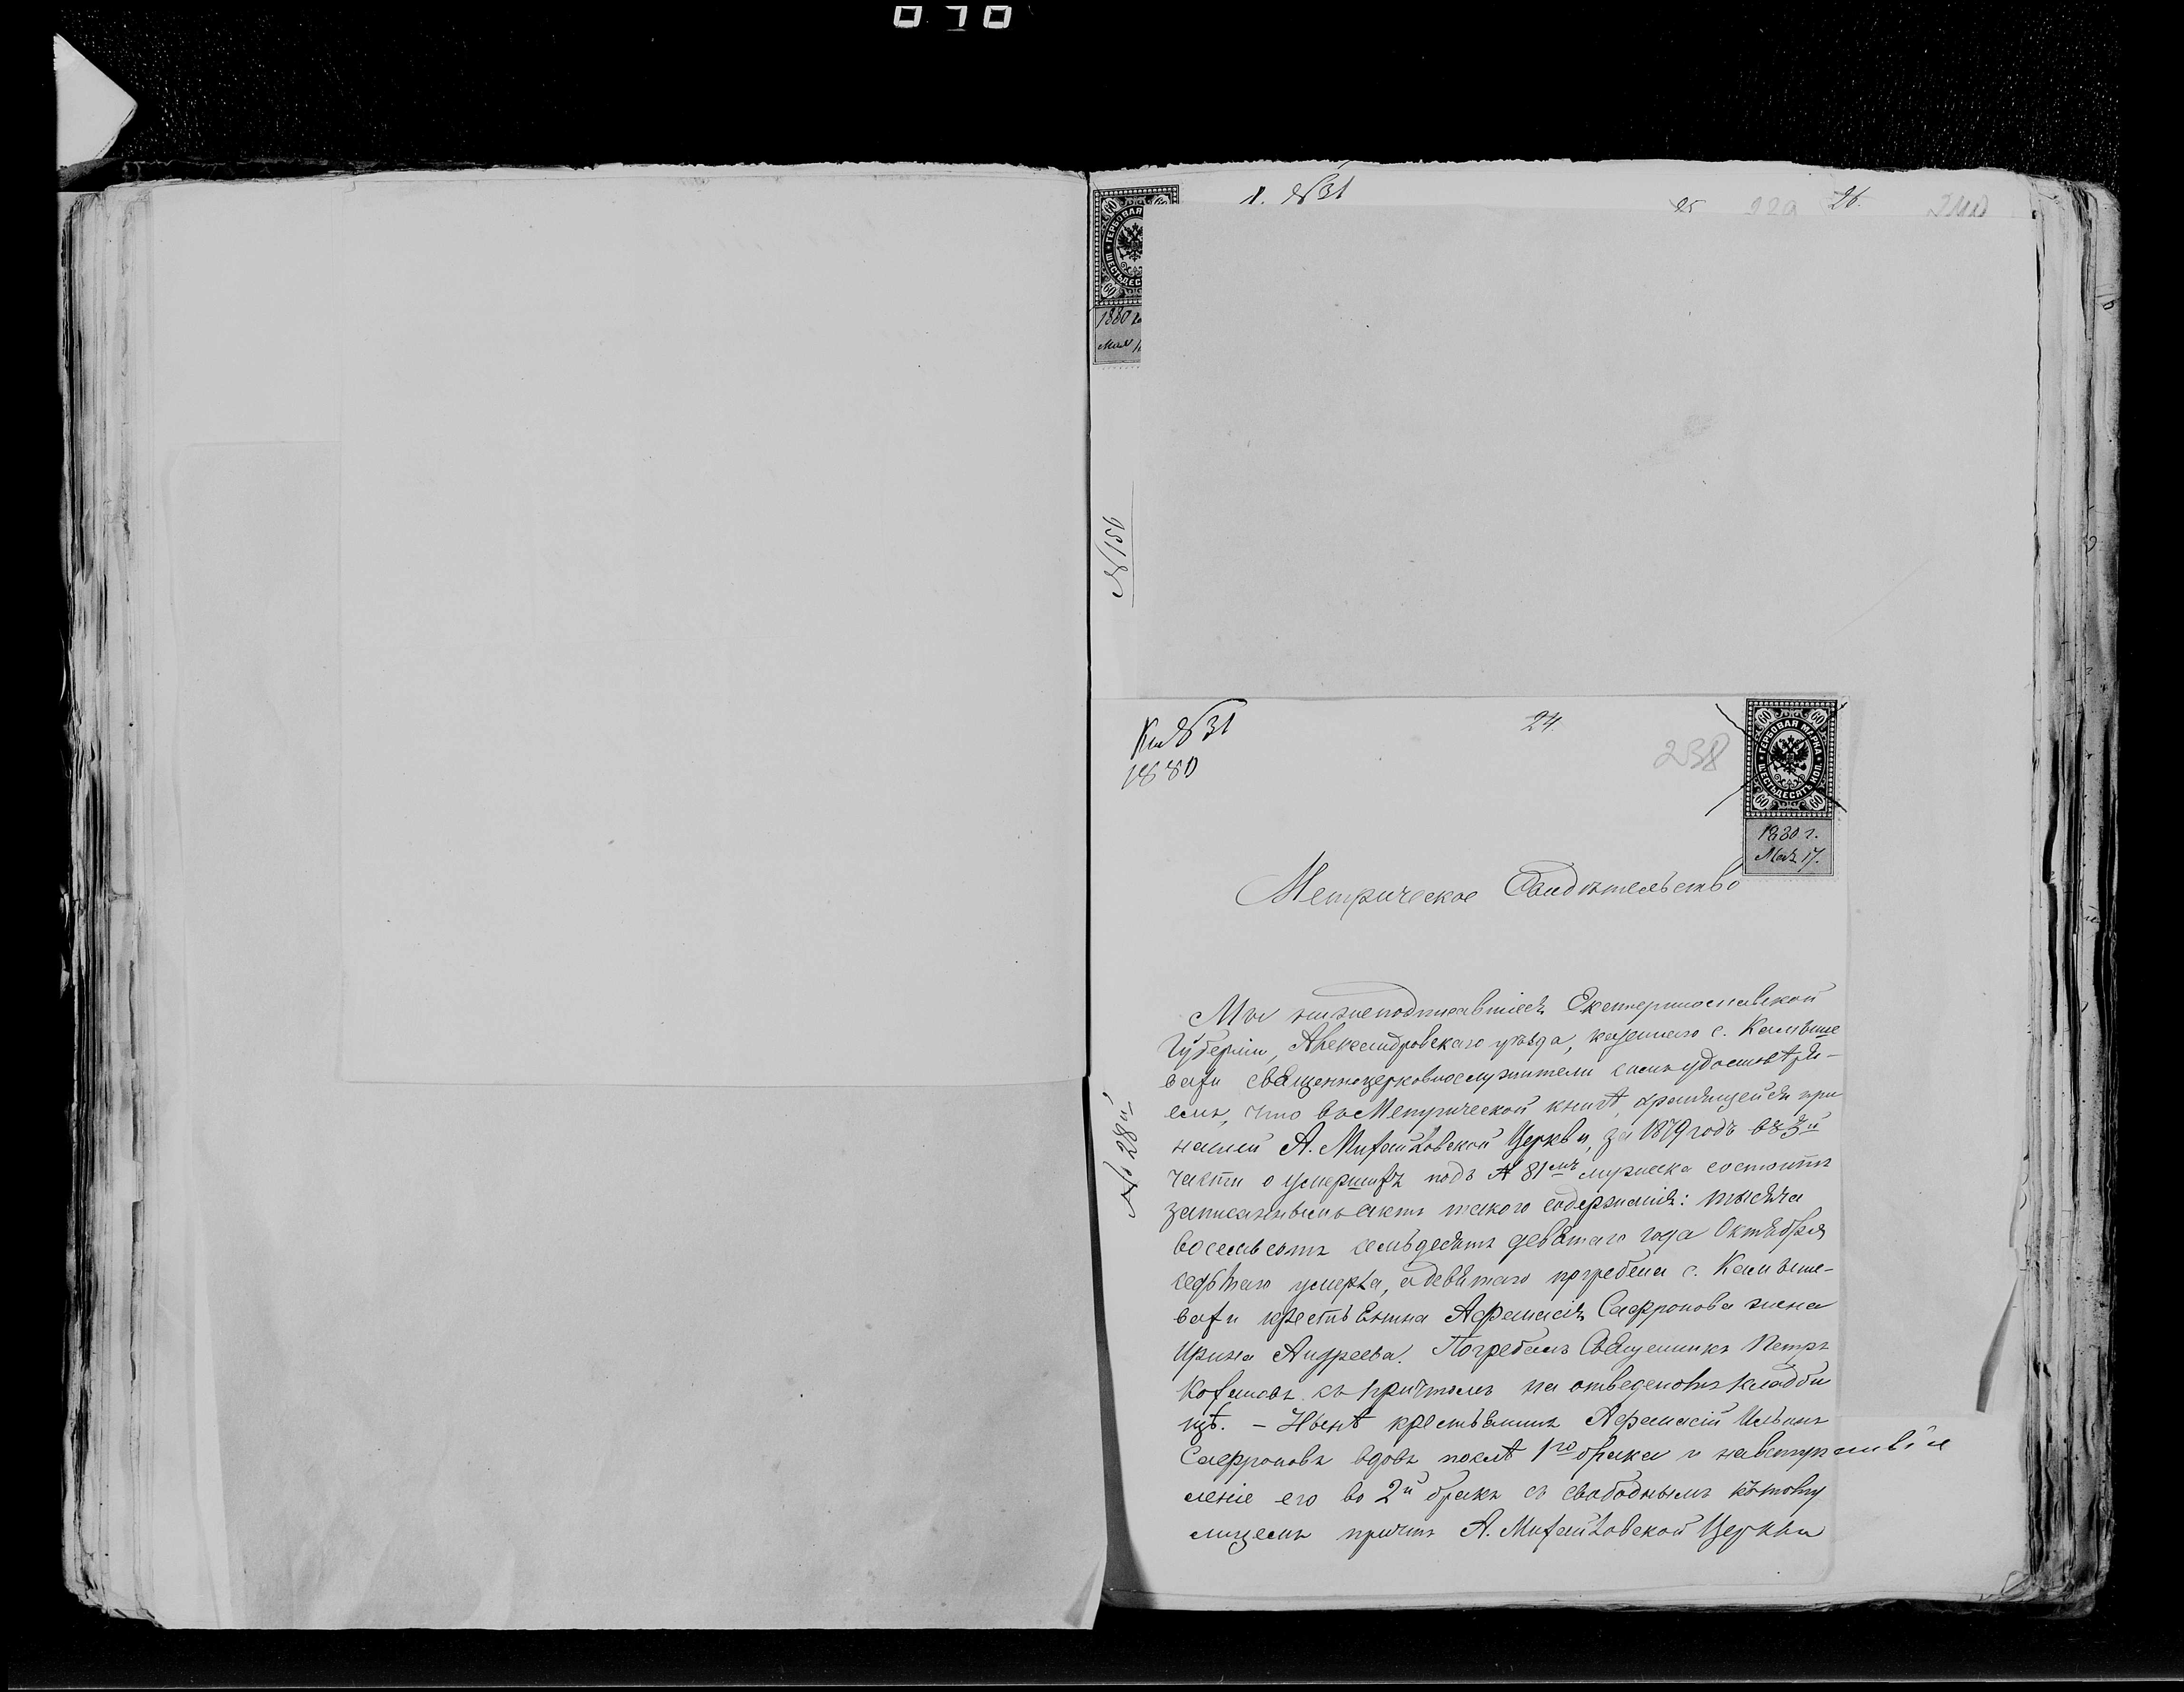 1. №31
25 229 26. 240
60
ГЕРБОВАЯ
ШЕСТЬДЕС
60
1880
Мая
№ 156
Кн №31
1880
24.
238
60 60
ГЕРБОВАЯ МАРКА
ШЕСТЬДЕСЯТЬ КОП.
60 60
1880 г.
Мая 17.
Метрическое Свидѣтельство
№ 28й
Мы нижеподписавшіеся Екатеринославской
Губерніи, Александровскаго уѣзда, казеннаго с. Камыше
вахи священноцерковнослужители симъ удостовѣря-
емъ, что въ Метрической книгѣ, хранящейся при
нашей А. Михайловской Церкви, за 1879 годъ въ 3й
части о умершихъ подъ № 81мъ женска состоитъ
записаннымъ актъ такого содержанія: тысяча
восемьсотъ семьдесятъ девятаго года Октября
седьмаго умерла, а девятаго погребена с. Камыше-
вахи крестьянина Афанасія Сафронова жена
Ирина Андреева. Погребалъ Священникъ Петръ
съ причтомъ на отведеномъ кладби
щѣ. – Нынѣ крестьянинъ Афанасій Ильинъ
Сафроновъ вдовъ послѣ 1го брака и на вступ
леніе его во 2й бракъ съ свободнымъ къ тому
лицемъ причтъ А. Михайловской Церкви